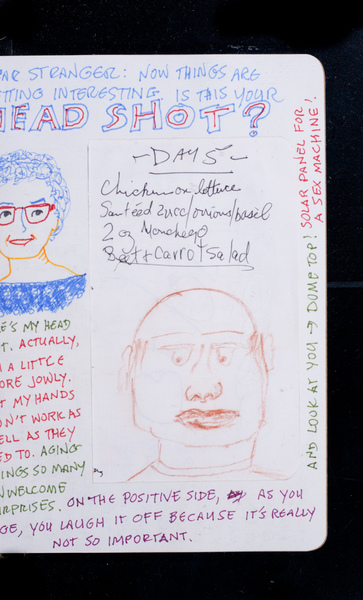 AR STRANGER: NOW THINGS ARE
TTING INTERESTING. IS THIS YOUR
HEAD SHOT?
-DAY 5-
Chicken on lettuce
Sauteed zucc/onions/basil
2 oz Manchego
Beet + Carrot Salad
E'S MY HEAD
T. ACTUALLY,
A LITTLE
ORE JOWLY.
T MY HANDS
N'T WORK AS
ELL AS THEY
ED TO. AGING
INGS SO MANY
NWELCOME
RPRISES. ON THE POSITIVE SIDE, AS YOU
GE, YOU LAUGH IT OFF BECAUSE IT'S REALLY
NOT SO IMPORTANT.
AND LOOK AT YOU → DOME TOP! SOLAR PANEL FOR
A SEX MACHINE!